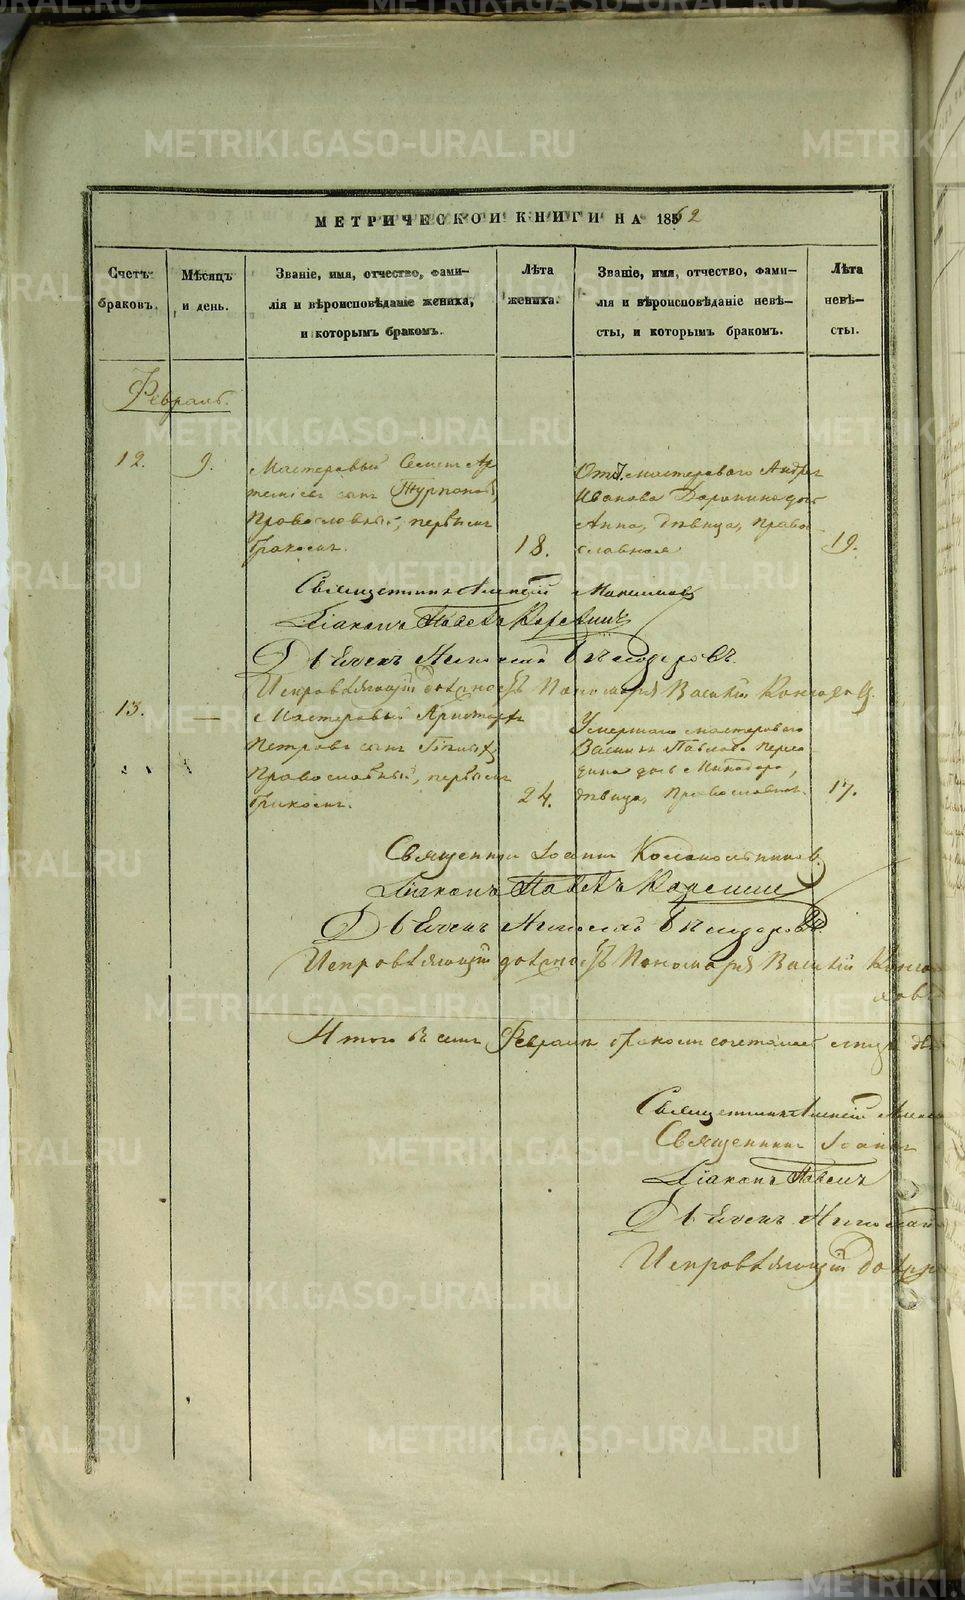 МЕТРИЧЕСКОЙ КНИГИ НА 1862
Счетъ
браковъ.
Мѣсяцъ
и день.
Званіе, имя, отчество, фами-
лія и вѣроисповѣданіе жениха,
и которымъ бракомъ.
Лѣта
жениха.
Званіе, имя, отчество, фами-
лія и вѣроисповѣданіе невѣ-
сты, и которымъ бракомъ.
Лѣта
невѣ-
сты.
Февраль.
12.
9.
Мастеровый Семенъ Ар
теміевъ сынъ
Православный, первымъ
бракомъ.
18.
мастероваго Андрея
Иванова дочь
Анна, дѣвица, право
славная
19.
Священникъ Алексій
Діаконъ Павелъ
Дьячекъ Николай
Исправляющій должность Пономаря Василій
13.
—
Мастеровый Аристархъ
Петровъ сынъ
Православный, первымъ
бракомъ.
24.
Умершаго мастероваго
Василья Павлова
дочь Минодора,
дѣвица, Православная.
17.
Священникъ Іоаннъ Колокольниковъ
Діаконъ Павелъ
Дьячекъ Николай
Исправляющій должность Пономаря Василій
Итого въ семъ Февралѣ бракомъ сочеталось
Священникъ Алексій
Священникъ Іоаннъ
Діаконъ Павелъ
Дьячекъ Николай
Исправляющій
METRIKI.GASO-URAL.RU